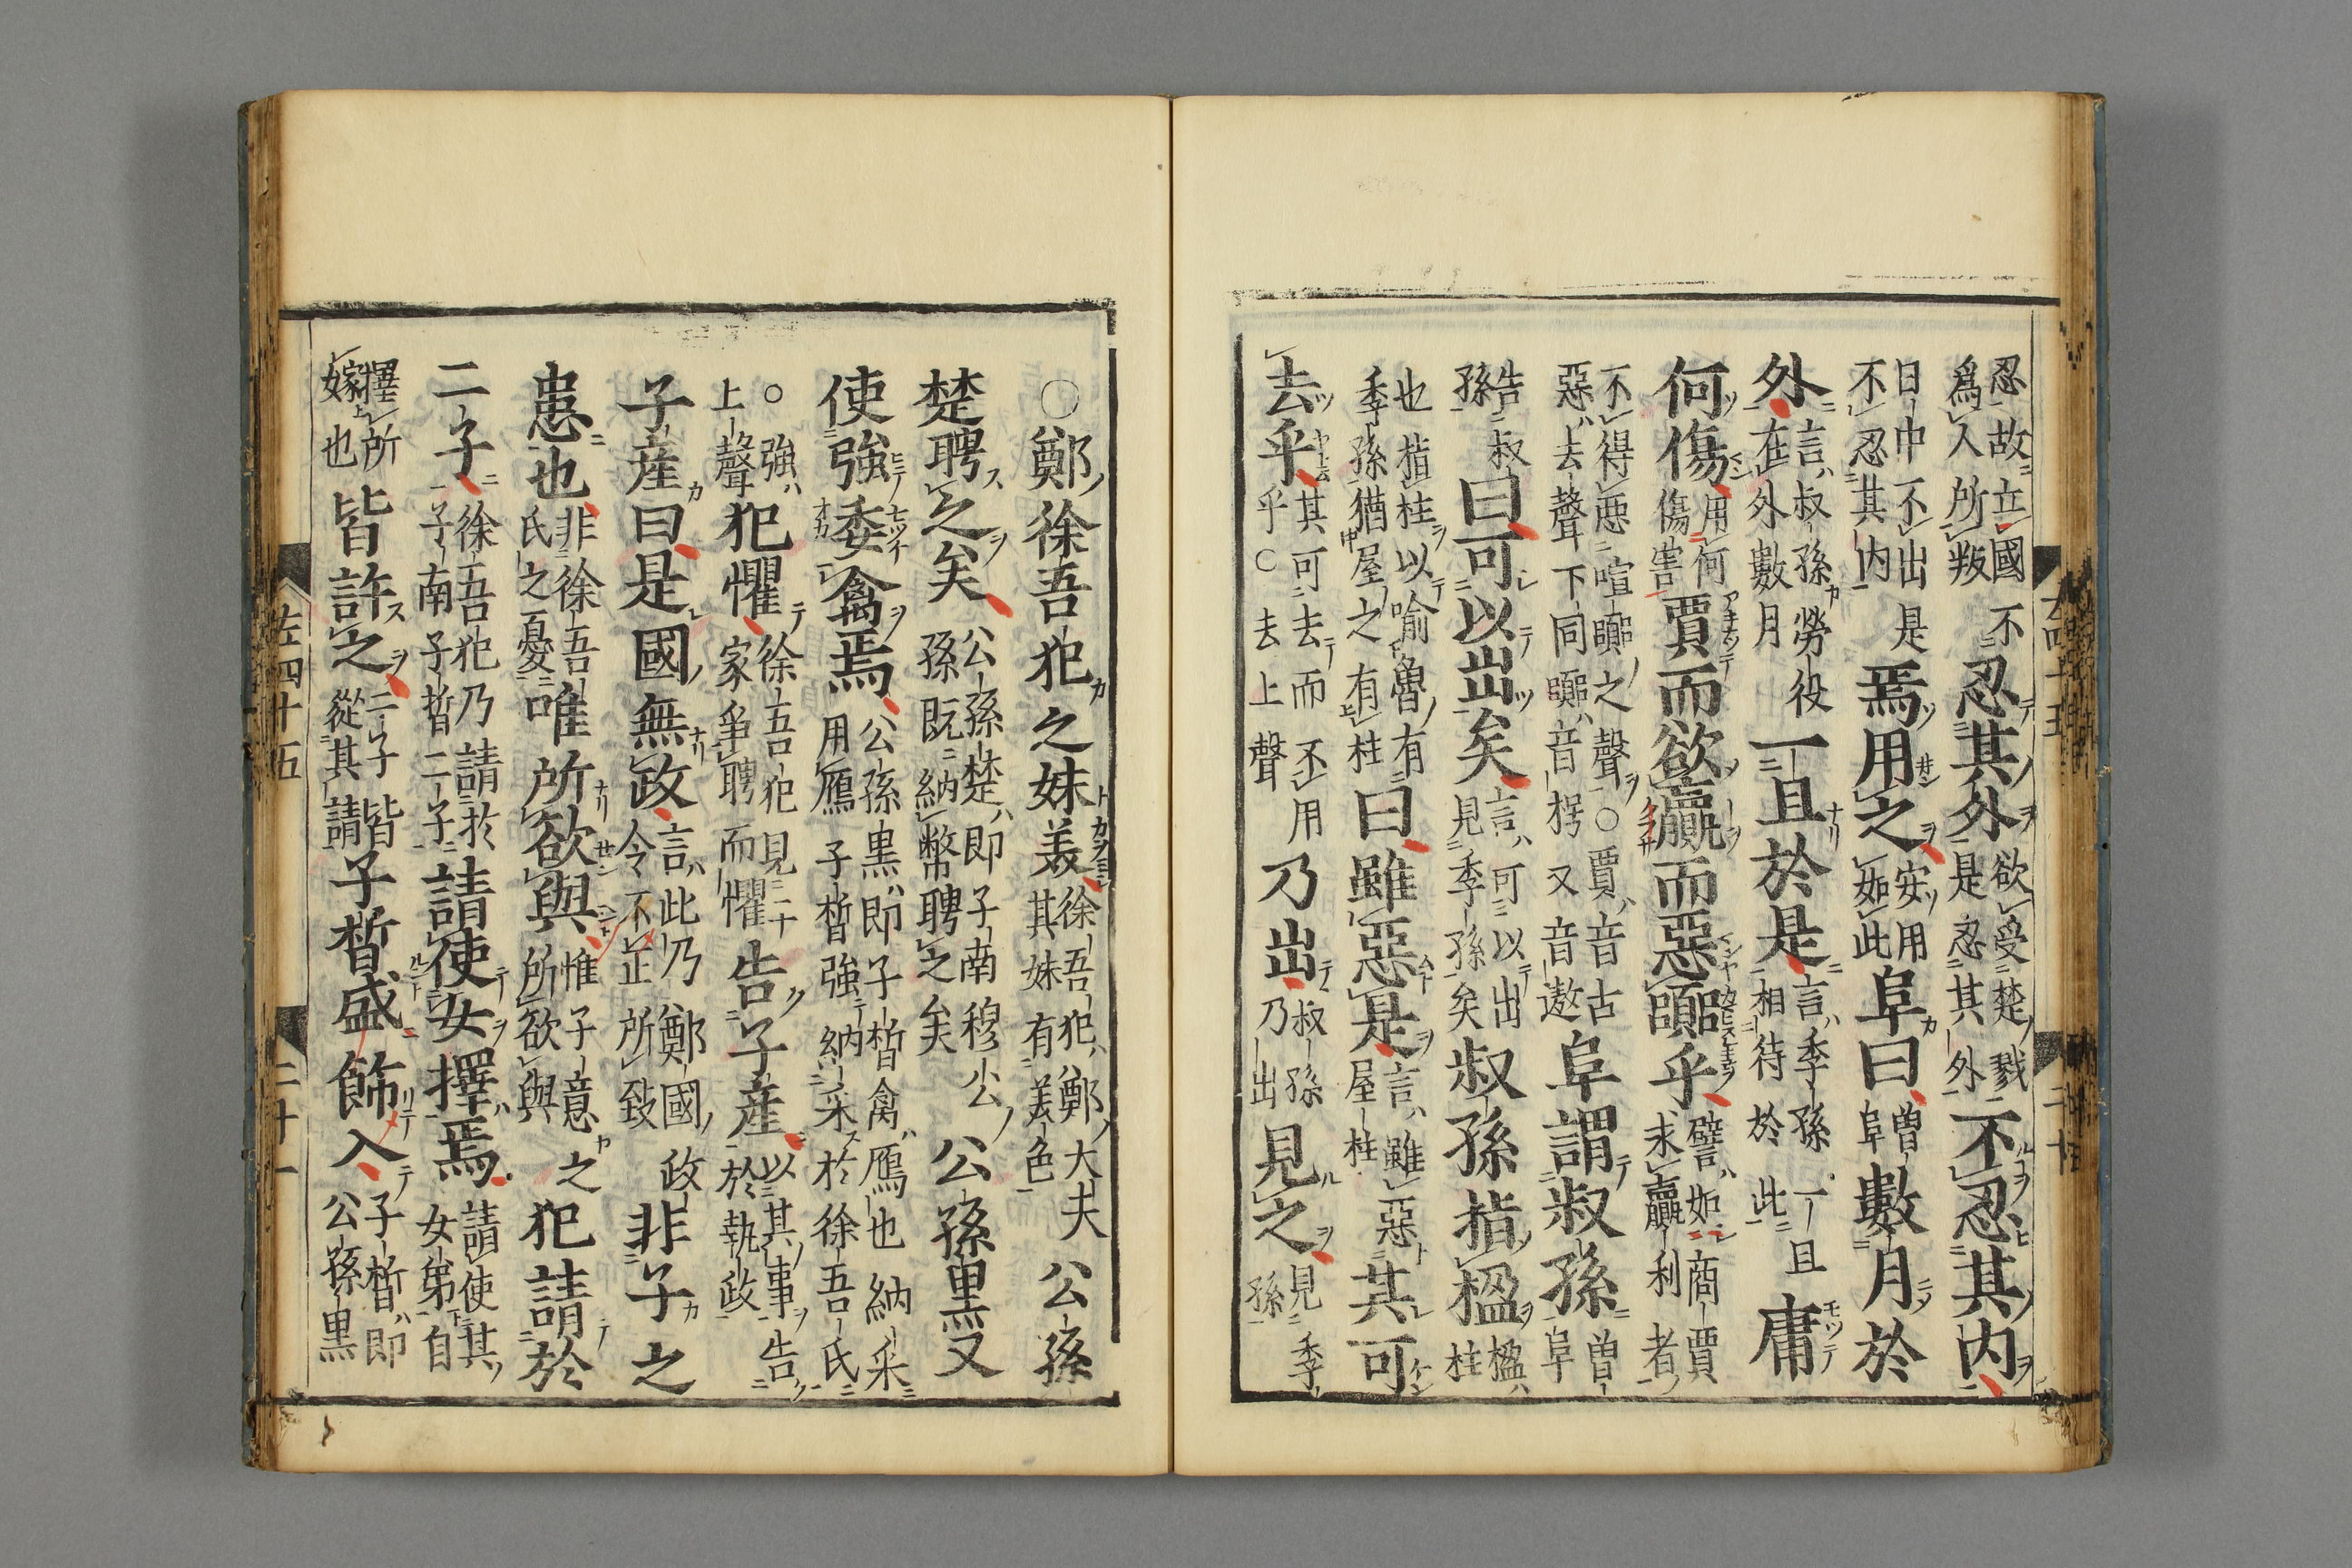 忍故立國不爲人所叛忍其外欲受楚戮是忍其外不忍其内
日中不出是不忍其内焉用之安用如此阜曰曾阜數月於
外言叔孫勞役在外數月一旦於是言季孫一旦相待於此庸
何傷用何傷害賈而欲贏而惡嚻乎譬如商賈求贏利者
不得惡喧嚻之聲○賈音古惡去聲下同嚻音枵又音遨阜謂叔孫曾阜
告叔孫曰可以出矣言可以出見季孫矣叔孫指楹楹柱
也指柱以喻魯有季孫猶屋之有柱曰雖惡是言雖惡其屋柱其可
去乎其可去而不用乎○去上聲乃出叔孫乃出見之見季孫
○鄭徐吾犯之妹美徐吾犯鄭大夫其妹有美色公孫
楚聘之矣公孫楚即子南穆公孫既納幣聘之矣公孫黒又
使強委禽焉公孫黒即子晳禽鴈也納采用鴈子晳強納采於徐吾氏
○強上聲犯懼徐吾犯見二家爭聘而懼告子産以其事告於執政
子産曰是國無政言此乃鄭國政令不正所致非子之
患也非徐吾氏之憂唯所欲與惟子意之所欲與犯請於
二子徐吾犯乃請於子南子晳二子請使女擇焉請使其女弟自
擇所嫁也皆許之二子皆從其請子晳盛飾入子晳即公孫黒
左四十五
二十一